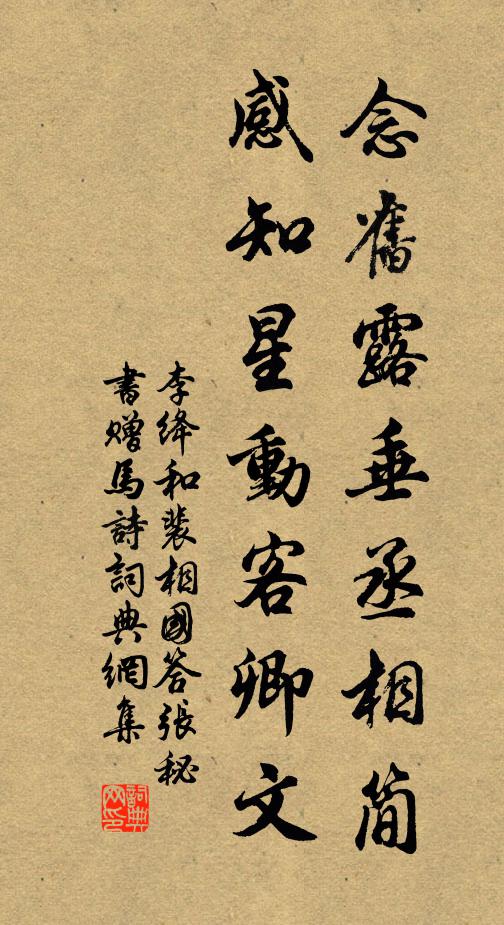 念舊露垂丞相簡
感知星動客卿文
李絳和裴相國答張秘
書贈馬詩詞典網集
詞典
网印